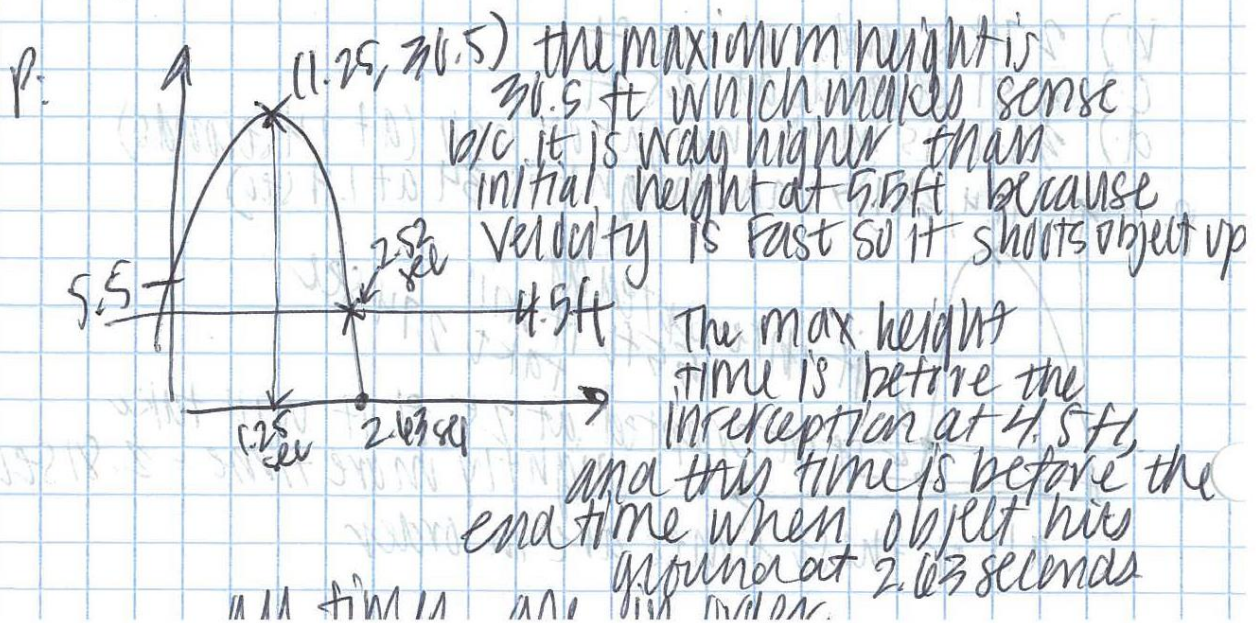 P.
(1.25, 30.5) the maximum height is
30.5 ft which makes sense
b/c it is way higher than
initial height at 5.5ft because
velocity is fast so it shoots object up
2.52
sec
5.5
4.5ft
The max height
time is before the
interception at 4.5ft,
1.25
sec
2.63 sec
and this time is before the
end time when object hits
ground at 2.63 seconds
all times are in order